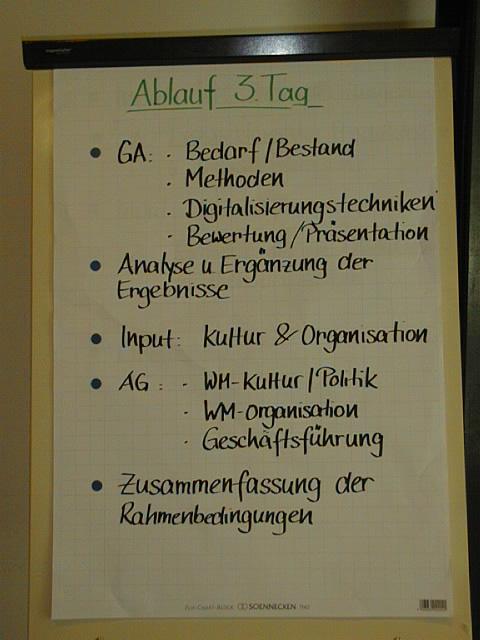 Ablauf 3. Tag
• GA: · Bedarf/Bestand
· Methoden
· Digitalisierungstechniken
· Bewertung/Präsentation
• Analyse u. Ergänzung der
Ergebnisse
• Input: Kultur & Organisation
• AG: · WM-Kultur/Politik
· WM-Organisation
· Geschäftsführung
• Zusammenfassung der
Rahmenbedingungen
FLIP-CHART-BLOCK SOENNECKEN